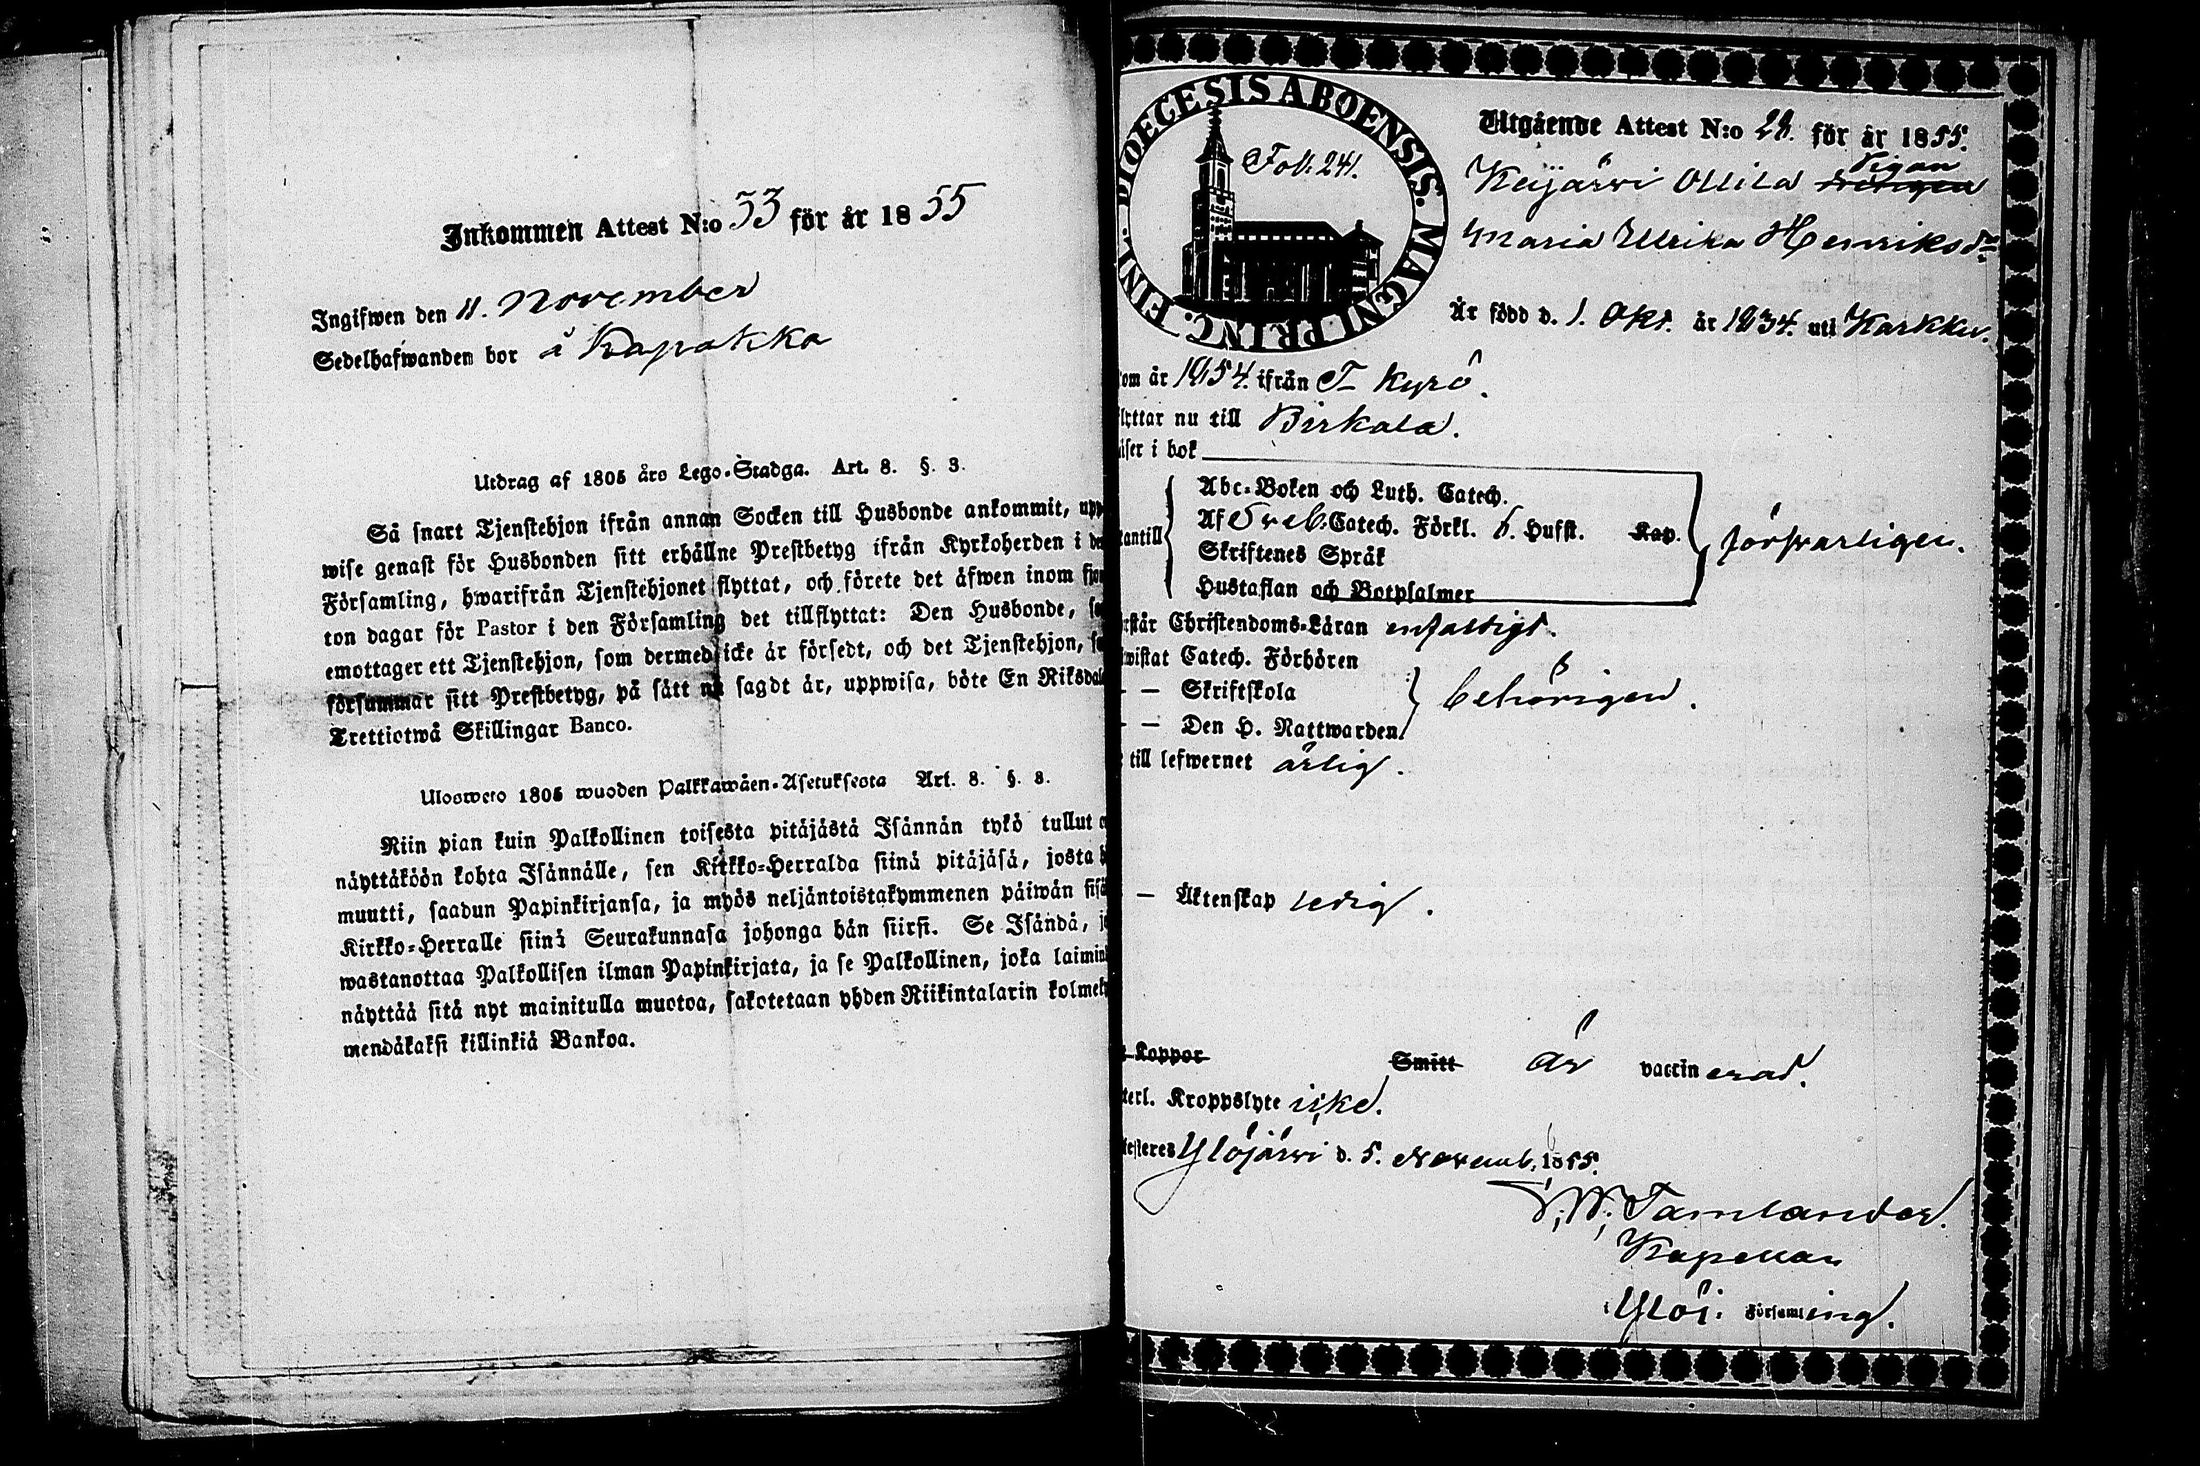 Inkommen Attest N:o 53 för år 1855
Ingifwen den 11. November
Sedelhafwanden bor å Kapakka
Utdrag af 1805 års Lego-Stadga. Art. 8. §. 3.
Så snart Tjenstehjon ifrån annan Socken till Husbonde ankommit, upp
wise genast för Husbonden sitt erhållne Prestbetyg ifrån Kyrkoherden i de
Församling, hwarifrån Tjenstehjonet flyttat, och förete det äfwen inom fjor
ton dagar för Pastor i den Församling det tillflyttat: Den Husbonde, so
emottager ett Tjenstehjon, som dermed icke är försedt, och det Tjenstehjon, so
försummar sitt Prestbetyg, på sätt nu sagdt är, uppwisa, böte En Riksdal
Trettiotwå Skillingar Banco.
Ulosweto 1805 wuoden Palkkawäen-Asetuksesta Art. 8. §. 3.
Niin pian kuin Palkollinen toisesta pitäjästä Isännän tykö tullut o
näyttäköön kohta Isännälle, sen Kirkko-Herralda siinä pitäjäsä, josta h
muutti, saadun Papinkirjansa, ja myös neljäntoistakymmenen päiwän sisä
Kirkko-Herralle siinä Seurakunnasa johonga hän siirsi. Se Isändä, jo
wastanottaa Palkollisen ilman Papinkirjata, ja se Palkollinen, joka laimin
näyttää sitä nyt mainitulla muotoa, sakotetaan yhden Riikintalarin kolmeky
mendäkaksi killinkiä Bankoa.
FINL. DIOECESIS ABOENSIS. MAGNI PRINC.
Fol. 241.
Utgående Attest N:o 28. för år 1855.
Pigan
Keijärvi Ollila
Maria Ulrika Henriksdr
Är född d. 1. Okt. år 1834. uti Karkku.
om år 1854. ifrån T Kyrö.
lyttar nu till Birkala.
äser i bok
Abc-Boken och Luth. Catech.
antill Af Sveb. Catech. Förkl. 5. Hufst. Kap. försvarligen.
Skriftenes Språk
Hustaflan och Botpsalmer
rstår Christendoms-Läran enfaldigt.
wistat Catech. Förhören
— — Skriftskola behörigen.
— — Den H. Nattwarden
till lefwernet ärlig.
— Äktenskap ledig.
Koppor Smitt är vaccinerad.
terl. Kroppslyte icke.
testeres Ylöjärvi d. 5. Novemb. 1855.
Tamlander.
Kapellan
i Ylöj. Församling.